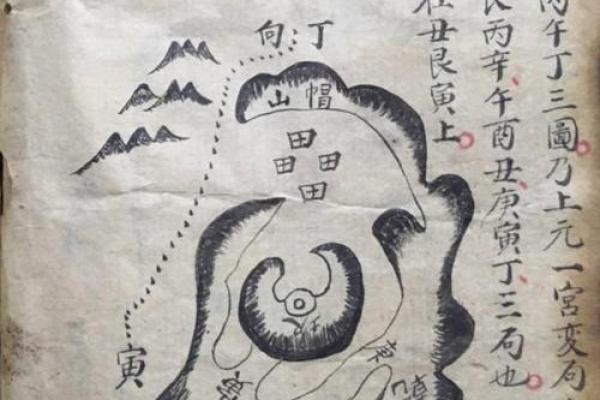 丙午丁三圖乃上元一宮変局
艮丙辛午酉丑庚寅丁三局也
在丑艮寅上
丁向
帽山
田
田
田
田
寅